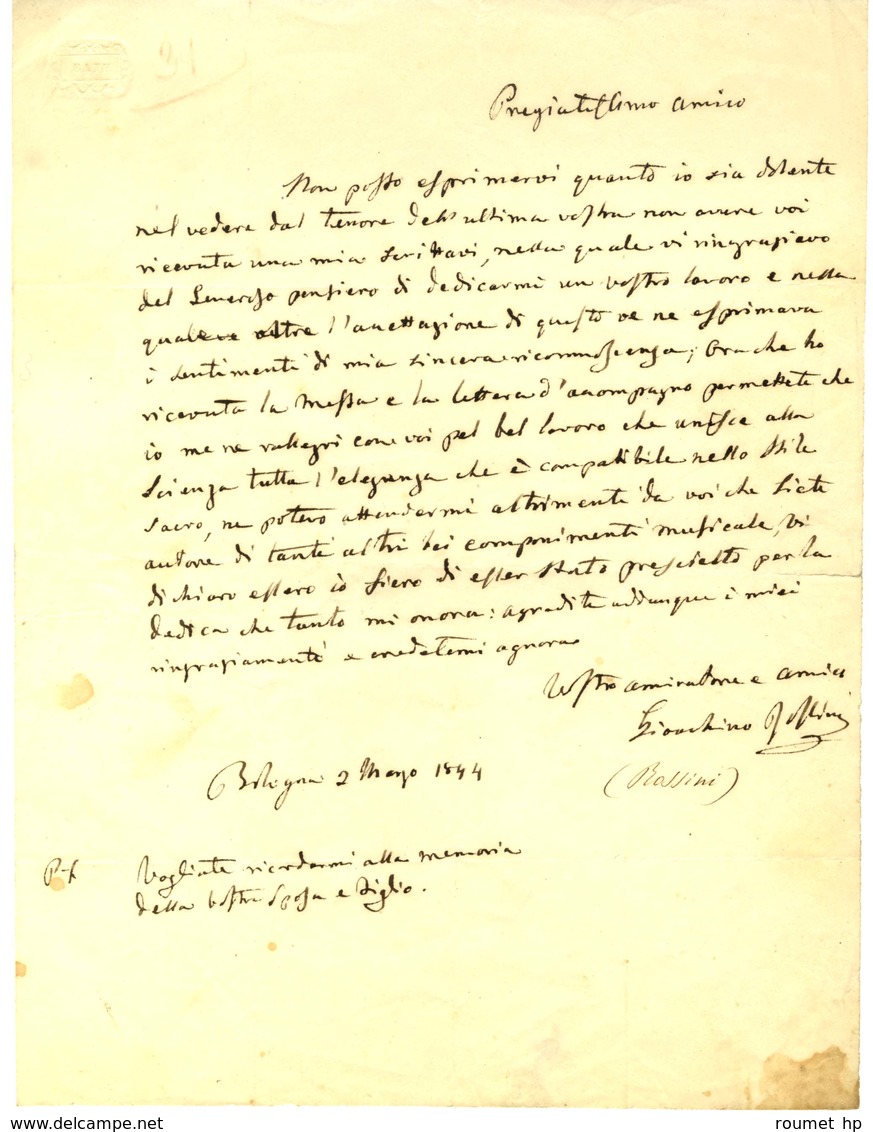 BATH
31
Pregiatissimo Amico
Non posso esprimervi quanto io sia dolente
nel vedere dal tenore dell'ultima vostra non avere voi
ricevuta una mia Scrittavi, nella quale vi ringraziavo
del pensiero di dedicarmi un vostro lavoro e nella
quale oltre l'accettazione di questo ve ne esprimava
i sentimenti di mia sincera riconnoscenza; Ora che ho
ricevuta la Messa e la lettera d'accompagno permettete che
io me ne rallegri con voi pel bel lavoro che unisce alla
Scienza tutta l'eleganza che è compatibile nello Stile
Sacro, ne potevo attendermi altrimenti da voi che Siete
autore di tanti altri bei componimenti musicale, vi
dichiaro essere io fiero di esser stato prescielto per la
dedica che tanto mi onora: agradite addunque i miei
ringraziamenti e credetemi agnora
Vostro amiratore e amico
Gioachino Rossini
Bologna 2 Marzo 1844
(Rossini)
P.S. Vogliate ricordarmi alla memoria
della vostra Sposa e figlio.
www.delcampe.net
roumet hp